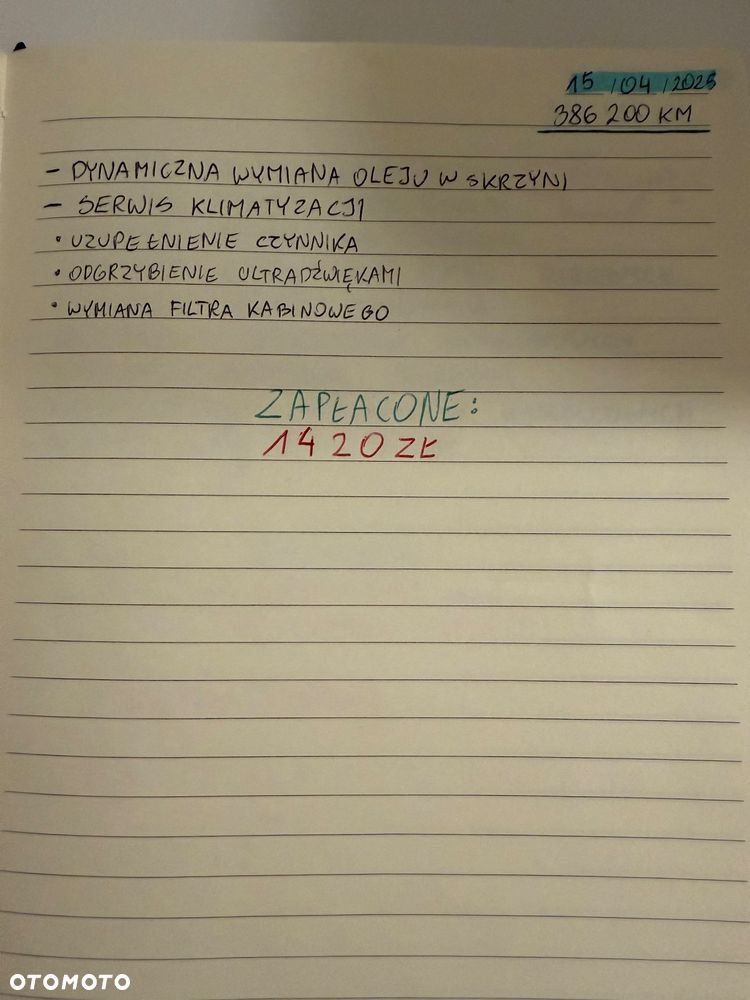 15/04/2025
386 200 KM
- DYNAMICZNA WYMIANA OLEJU W SKRZYNI
- SERWIS KLIMATYZACJI
• UZUPEŁNIENIE CZYNNIKA
• ODGRZYBIENIE ULTRADŹWIĘKAMI
• WYMIANA FILTRA KABINOWEGO
ZAPŁACONE:
1420 ZŁ
OTOMOTO